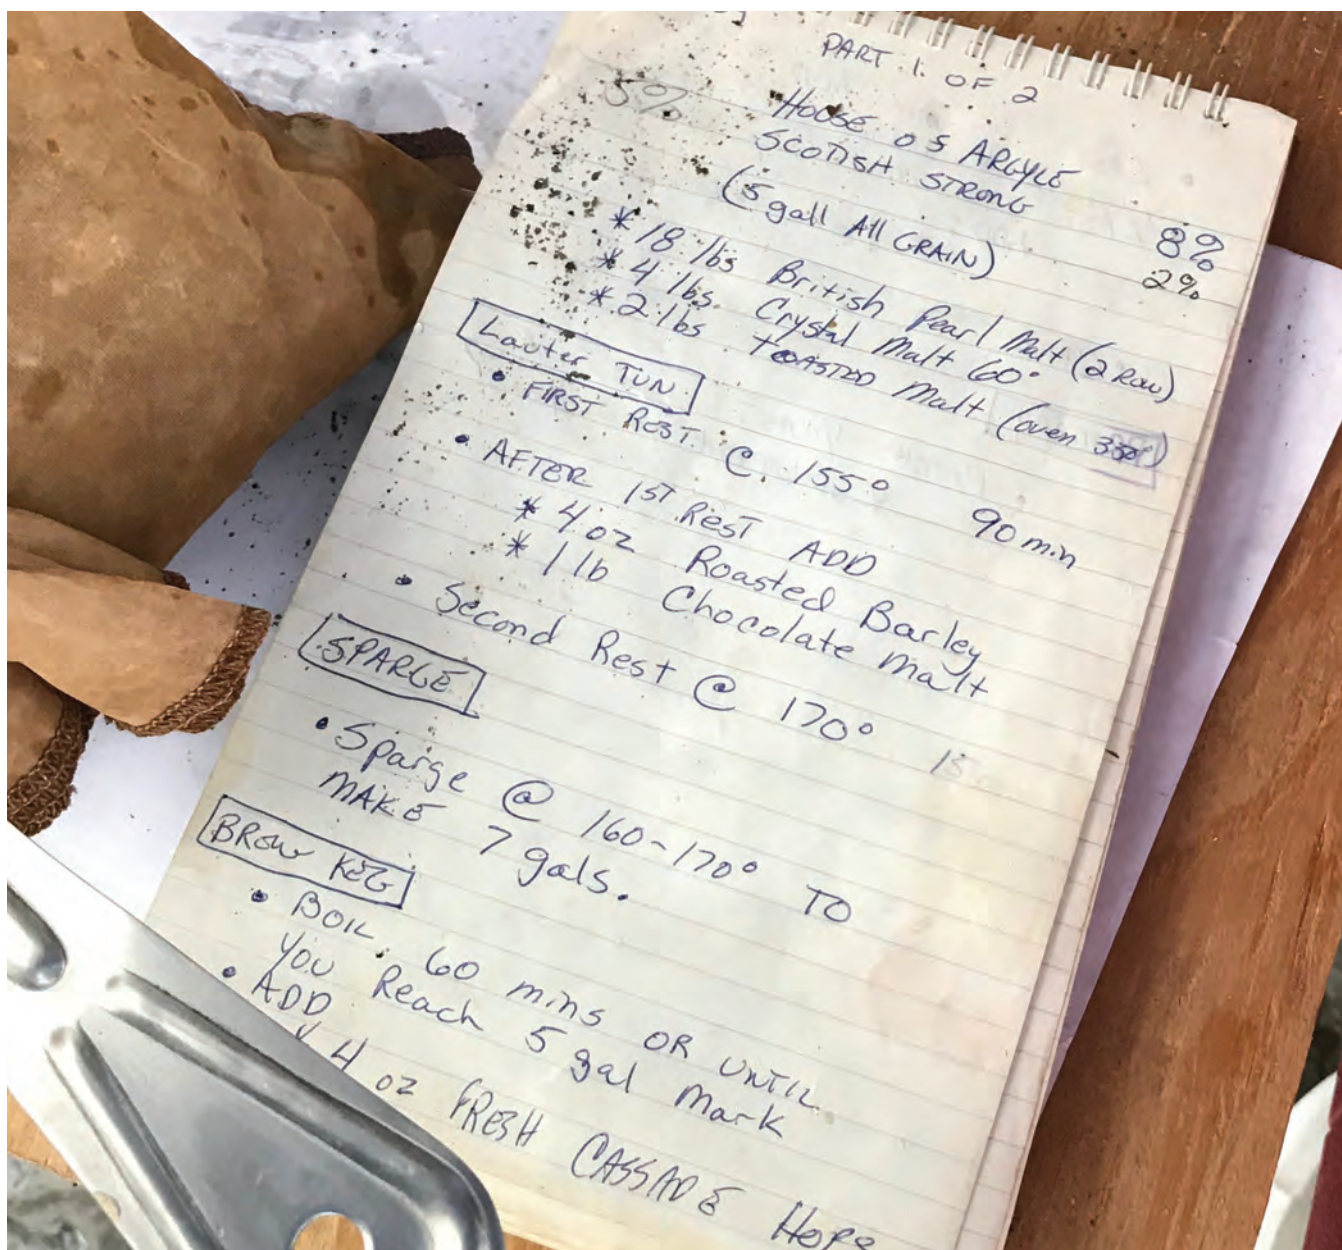 PART 1 OF 2
5%
HOUSE OF ARGYLE
SCOTISH STRONG
(5 gall All GRAIN)
8%
2%
* 18 lbs British Pearl Malt (2 Row)
* 4 lbs. Crystal Malt 60°
* 2 lbs TOASTED Malt (oven
Lauter TUN
• FIRST REST @ 155° 90 min
• AFTER 1ST REST ADD
* 4 oz Roasted Barley
* 1 lb Chocolate Malt
• Second Rest @ 170° 15
SPARGE
• Sparge @ 160-170° TO
MAKE 7 gals.
BREW KEG
• BOIL 60 mins OR UNTIL
YOU Reach 5 gal Mark
• ADD
4 oz FRESH CASSADE Hops